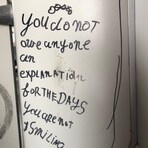 you do not
owe anyone
an
explanation
for THE DAYS
you are not
SMILING